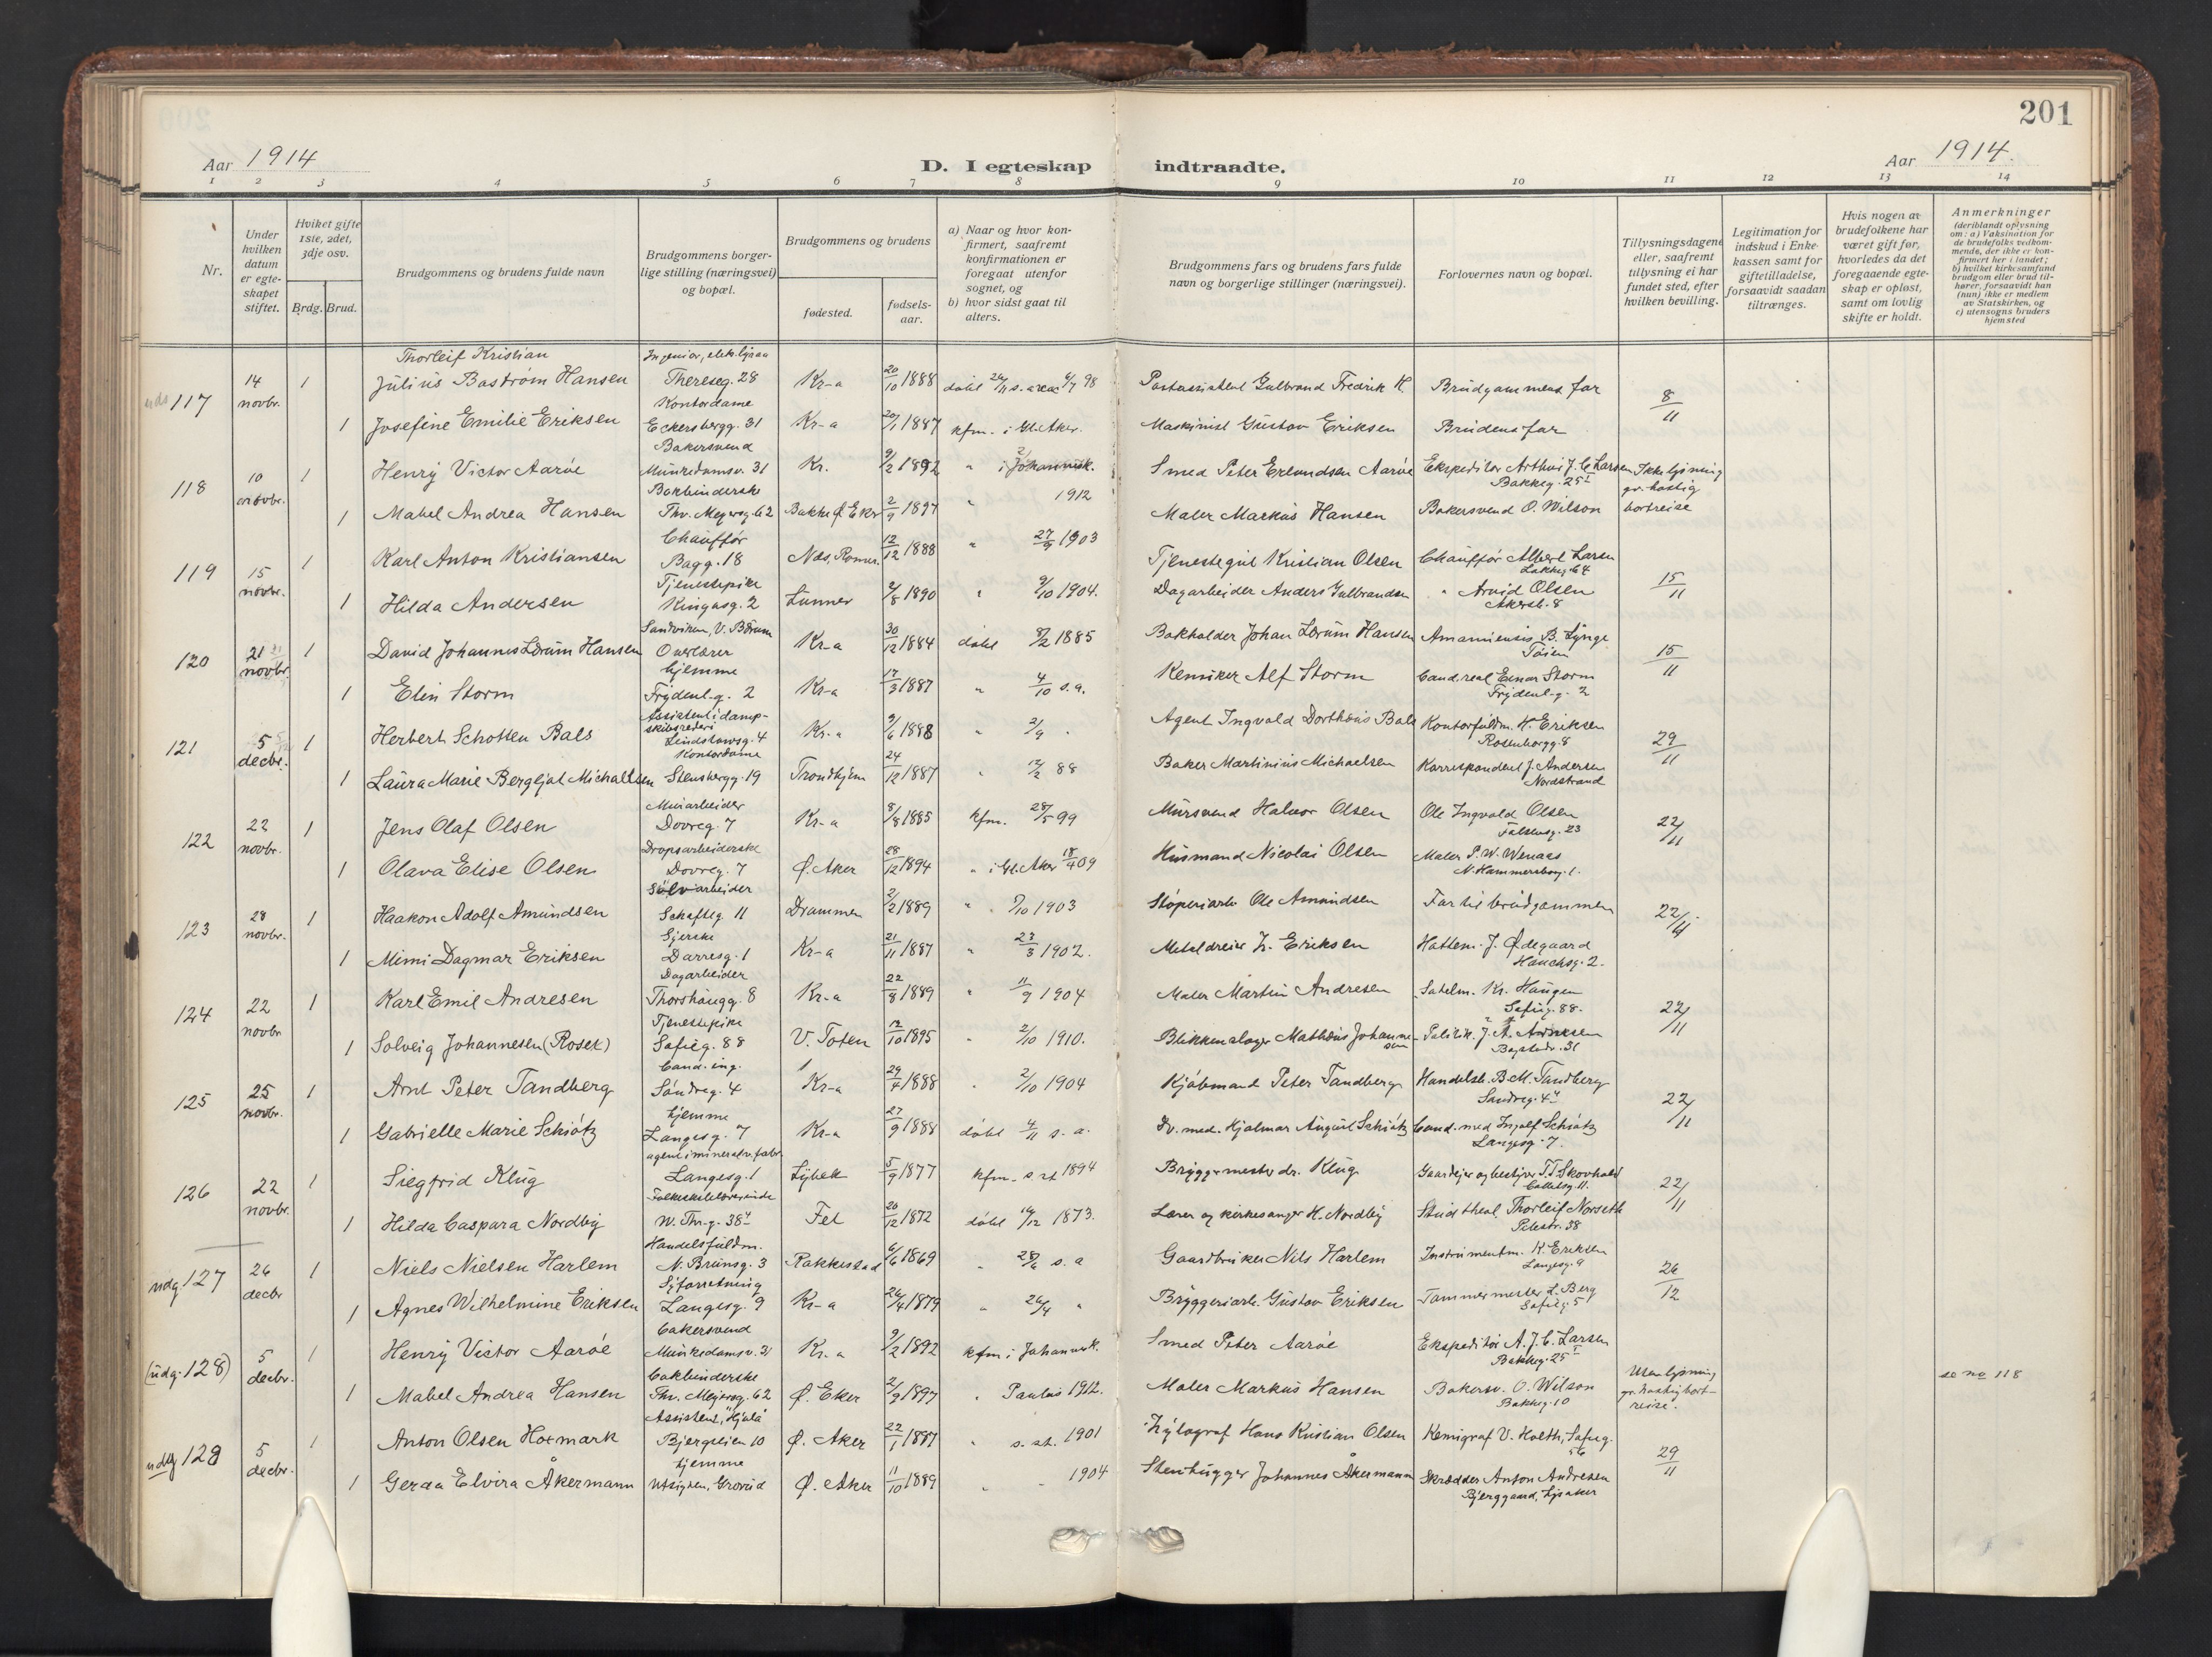 201
Aar 1914
D. I egteskap indtraadte.
Aar 1914.
1 2 3 4 5 6 7 8 9 10 11 12 13 14
Nr.
Under hvilken datum er egteskapet stiftet.
Hviket gifte 1ste, 2det, 3dje osv.
Brdg. Brud.
Brudgommens og brudens fulde navn
Brudgommens borgerlige stilling (næringsvei) og bopæl.
Brudgommens og brudens
fødested.
fødsels-aar.
a) Naar og hvor konfirmert, saafremt konfirmationen er foregaat utenfor sognet, og
b) hvor sidst gaat til alters.
Brudgommens fars og brudens fars fulde navn og borgerlige stillinger (næringsvei).
Forlovernes navn og bopæl.
Tillysningsdagene eller, saafremt tillysning ei har fundet sted, efter hvilken bevilling.
Legitimation for indskud i Enkekassen samt for giftetilladelse, forsaavidt saadan tiltrænges.
Hvis nogen av brudefolkene har været gift før, hvorledes da det foregaaende egteskap er opløst, samt om lovlig skifte er holdt.
Anmerkninger (deriblandt oplysning om: a) Vaksination for de brudefolks vedkommende, der ikke er konfirmert her i landet; b) hvilket kirkesamfund brudgom eller brud tilhører, forsaavidt han (hun) ikke er medlem av Statskirken, og c) utensogns bruders hjemsted
117 14 novbr. 1 Thorleif Kristian Julius Bastrøm Hansen Thereseg. 28 Kr-a 20/10 1888 døbt Postassistent Gulbrand Fredrik H. Brudgommens far 8/11
1 Josefine Emilie Eriksen Kontordame Eckersbergg. 31 Kr-a 20/1 1887 kfm. i Gl. Aker. Maskinist Gustav Eriksen Brudens far
118 10 novbr. 1 Henry Victor Aarøe Bakersvend Munkedamsv. 31 Kr. 9/2 1892 " i Johannesk. Smed Peter Erlundsen Aarøe Ekspeditør Arthur J. C. Larsen Bakkeg. 25 I Ikke lysning gr. hastig bortreise
1 Mabel Andrea Hansen Bokbinderske Thv. Meyersg. 62 Bakke Ø. Eker 2/9 1897 " 1912 Maler Markus Hansen Bakersvend O. Wilson
119 15 novbr. 1 Karl Anton Kristiansen Chauffør Bagg. 18 Nes, Romer. 12/12 1888 " 27/9 1903 Tjenestegut Kristian Olsen Chauffør Albert Larsen Lakkeg. 64 15/11
1 Hilda Andersen Tjenestepike Kingosg. 2 Lunner 2/8 1890 " 9/10 1904. Dagarbeider Anders Gulbrandsen " Arvid Olsen Akersb. 8
120 21 novbr. 1 David Johannes Lørum Hansen Sandviken, V. Bærum Overlærer Kr-a 30/12 1884 døbt 8/2 1885 Bokholder Johan Lørum Hansen Amanuensis B. Lynge Tøien 15/11
1 Elin Storm hjemme Frydenl.g. 2 Kr-a 17/3 1887 " 4/10 s.a. Kemiker Alf Storm Cand. real Einar Storm Frydenl.g. 2
121 5 decbr. 1 Herbert Schotten Bals Assistent i dampskibsrederi Lindstowsg. 4 Kr-a 9/6 1888 " 2/9 " Agent Ingvald Dorthæus Bals Kontorfuldm. H. Eriksen Rosenborgg. 8 29/11
1 Laura Marie Bergljot Michaelsen Kontordame Stensbergg. 19 Trondhjem 24/12 1887 " 12/2 88 Baker Martinius Michaelsen Korrespondent J. Andersen Nordstrand
122 22 novbr. 1 Jens Olaf Olsen Murarbeider Dovreg. 7 Kr-a 8/8 1885 kfm. 28/5 99 Mursvend Halvor Olsen Ole Ingvald Olsen Falsensg. 23 22/11
1 Olava Elise Olsen Dropsarbeiderske Dovreg. 7 Ø. Aker 28/12 1894 " i Gl. Aker 18/4 09 Husmand Nicolai Olsen Maler P. W. Wenaas N. Hammersborg 1.
123 28 novbr. 1 Haakon Adolf Amundsen Sølvarbeider Schafteg. 11 Drammen 2/2 1889 " 7/10 1903 Støperiarb. Ole Amundsen Far til brudgommen 22/11
1 Mimi Dagmar Eriksen Syerske Darresg. 1 Kr-a 21/11 1887 " 23/3 1902. Metaldreier H. Eriksen Hattem. J. Ødegaard Hauchsg. 2.
124 22 novbr 1 Karl Emil Andresen Dagarbeider Thorshaugg. 8 Kr-a 22/8 1889 " 11/9 1904 Maler Martin Andresen Salelm. Kr. Haugen Sofieg. 88. 22/11
1 Solveig Johannesen (Rosek) Tjenestepike Sofieg. 88 V. Toten 12/10 1895 " 2/10 1910. Blikkenslager Mathæus Johannesen Politik. J. A. Arnesen Bogstadv. 31
125 25 novbr. 1 Arnt Peter Tandberg Cand. ing. Søndreg. 4 Kr-a 29/4 1888 " 2/10 1904 Kjøbmand Peter Tandberg Handelsb. B. M. Tandberg Søndreg. 4 22/11
1 Gabrielle Marie Schiøtz hjemme Langesg. 7 Kr-a 27/9 1888 døbt 4/11 s. a. Dr. med. Hjalmar August Schiøtz Cand. med Ingolf Schiøtz Langesg. 7.
126 22 novbr. 1 Siegfrid Klug agent i mineralv. fabr. Langesg. 1 Lybek 5/9 1877 kfm. s st 1894 Bryggermester dr. Klug Gaardeier og bestyrer T. T. Skovhold Colletsg. 11. 22/11
1 Hilda Caspara Nordby Folkeskolelærerinde W. Thr.g. 38 Fet 20/12 1872 døbt 16/12 1873. Lærer og kirkesanger H. Nordby Stud theol. Thorleif Norseth Pilestr. 38
udg. 127 26 decbr 1 Niels Nielsen Harlem Handelsfuldm. N. Brunsg. 3 Rakkestad 6/6 1869 " s. a Gaardbruker Nils Harlem Instrumentm. K. Eriksen Langesg. 9 26/12
1 Agnes Wilhelmine Eriksen Syforretning Langesg. 9 Kr-a 26/4 1879 " 26/4 " Bryggeriarb. Gustav Eriksen Tømmermester L. Berg Sofieg. 5
(udg. 128) 5 decbr. 1 Henry Victor Aarøe bakersvend Munkedamsv. 31 Kr.a 9/2 1892 kfm i Johannesk. Smed Peter Aarøe Ekspeditør A. J. C. Larsen Bakkeg. 25 I Uten lysning gr. hastig bortreise. se no 118
1 Mabel Andrea Hansen bokbinderske Thv. Meyersg. 62 Ø. Eker 2/9 1897 " Paulus 1912. Maler Markus Hansen Bakersv. O. Wilson Bakkeg. 10
udg 129 5 decbr. 1 Anton Olsen Hoxmark Assistent, "Hjula" Bjergslien 10 Ø. Aker 22/1 1887 " s. st. 1901 Xylograf Hans Kristian Olsen Kemigraf V. Holth, Sofieg. 56 29/11
1 Gerda Elvira Åkermann hjemme Utsigten, Grorud Ø. Aker 11/10 1889 " " 1904 Stenhugger Johannes Åkermann Skrædder Anton Andresen Bjerggaard, Lysaker